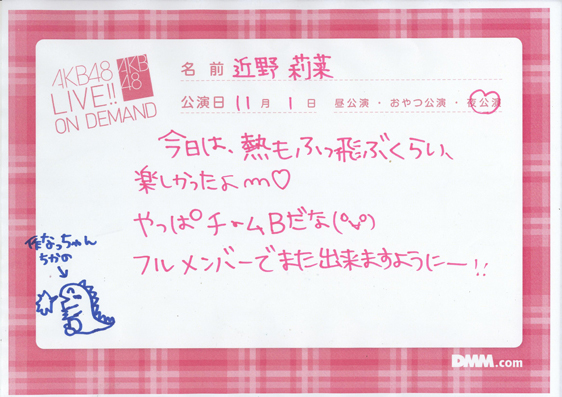 AKB48
LIVE!!
ON DEMAND
AKB
48
名前 近野 莉菜
公演日 11月 1日 昼公演・おやつ公演・夜公演
今日は、熱もふっ飛ぶくらい、
楽しかったよm♡
やっぱチームBだな(°v°)
フルメンバーでまた出来ますようにー!!
作なっちゃん
ちかの
DMM.com